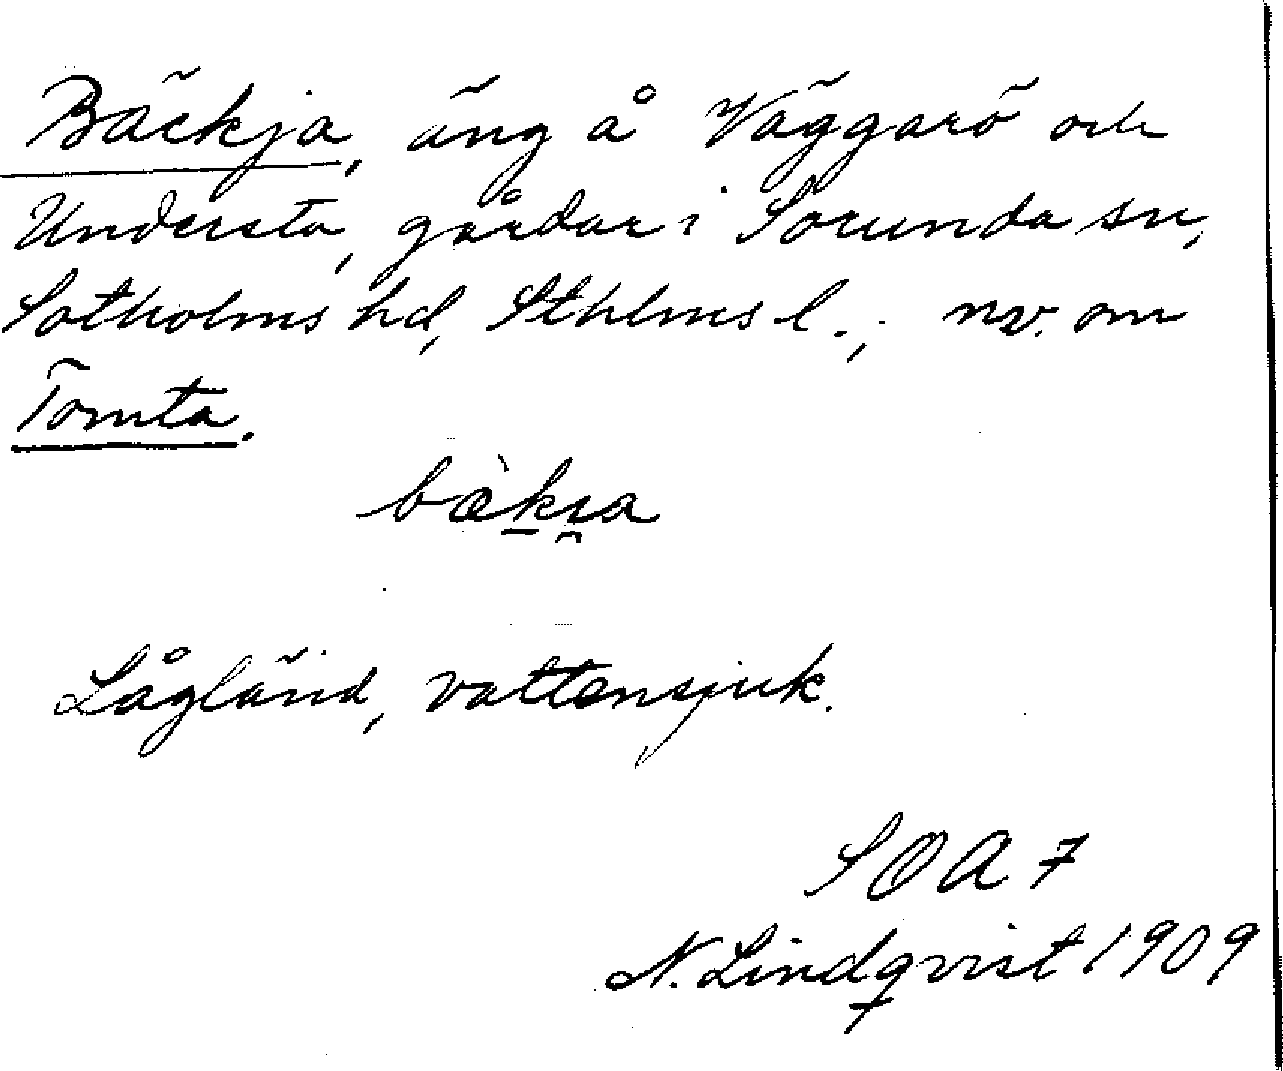 Bäckja, äng å Väggarö och
Understa, gårdar i Sorunda sn,
Sotholms hd, Sthlms l.; nv. om
Tomta.
bæ̀kı̯a
Lågländ, vattensjuk.
SOA 7
N. Lindqvist 1909